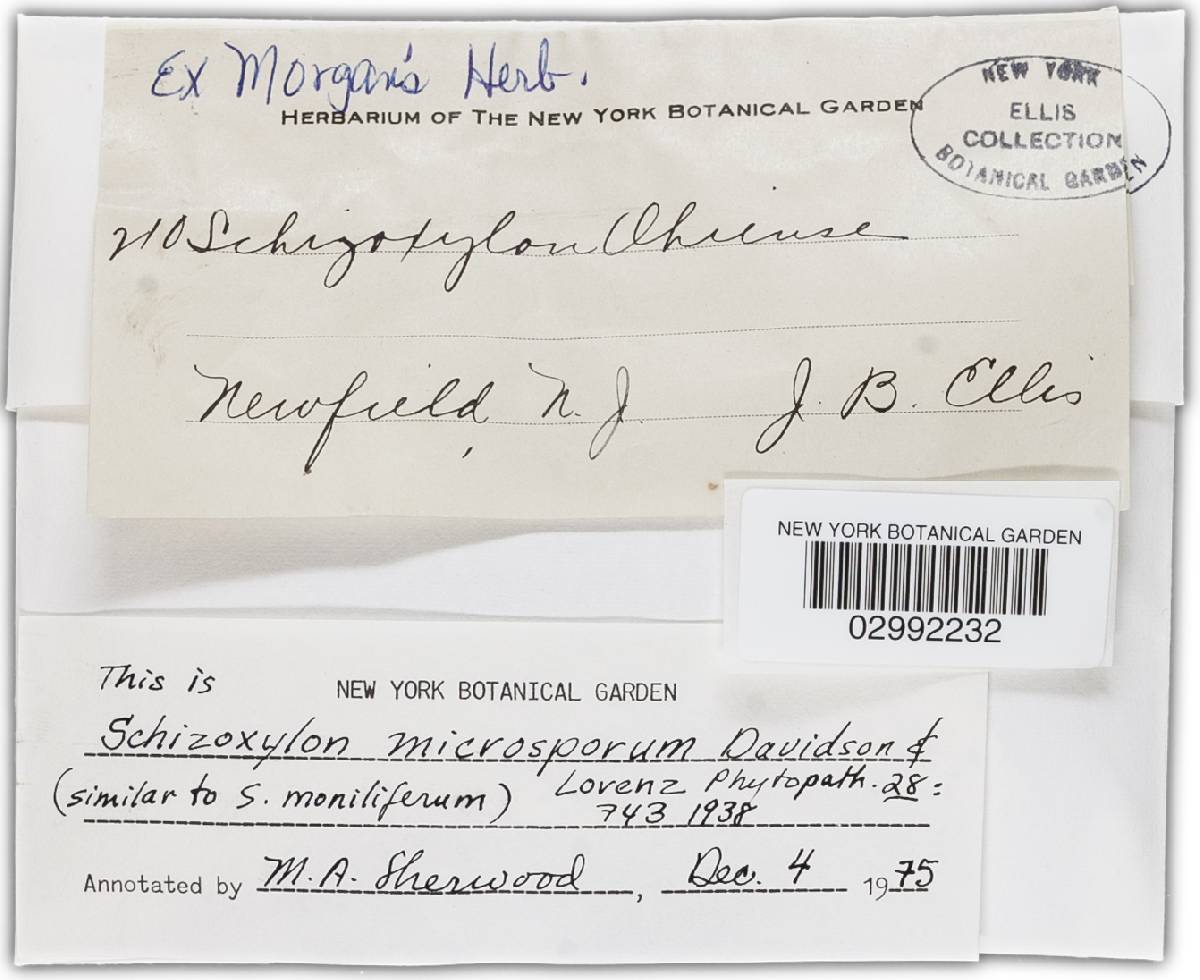 Ex Morgan's Herb.
HERBARIUM OF THE NEW YORK BOTANICAL GARDEN
NEW YORK
ELLIS
COLLECTION
BOTANICAL GARDEN
210 Schizoxylon Ohiense
Newfield, N. J. J. B. Ellis
NEW YORK BOTANICAL GARDEN
02992232
This is NEW YORK BOTANICAL GARDEN
Schizoxylon microsporum Davidson &
(similar to S. moniliferum) Lorenz Phytopath. 28:
743 1938
Annotated by M. A. Sherwood, Dec. 4 1975